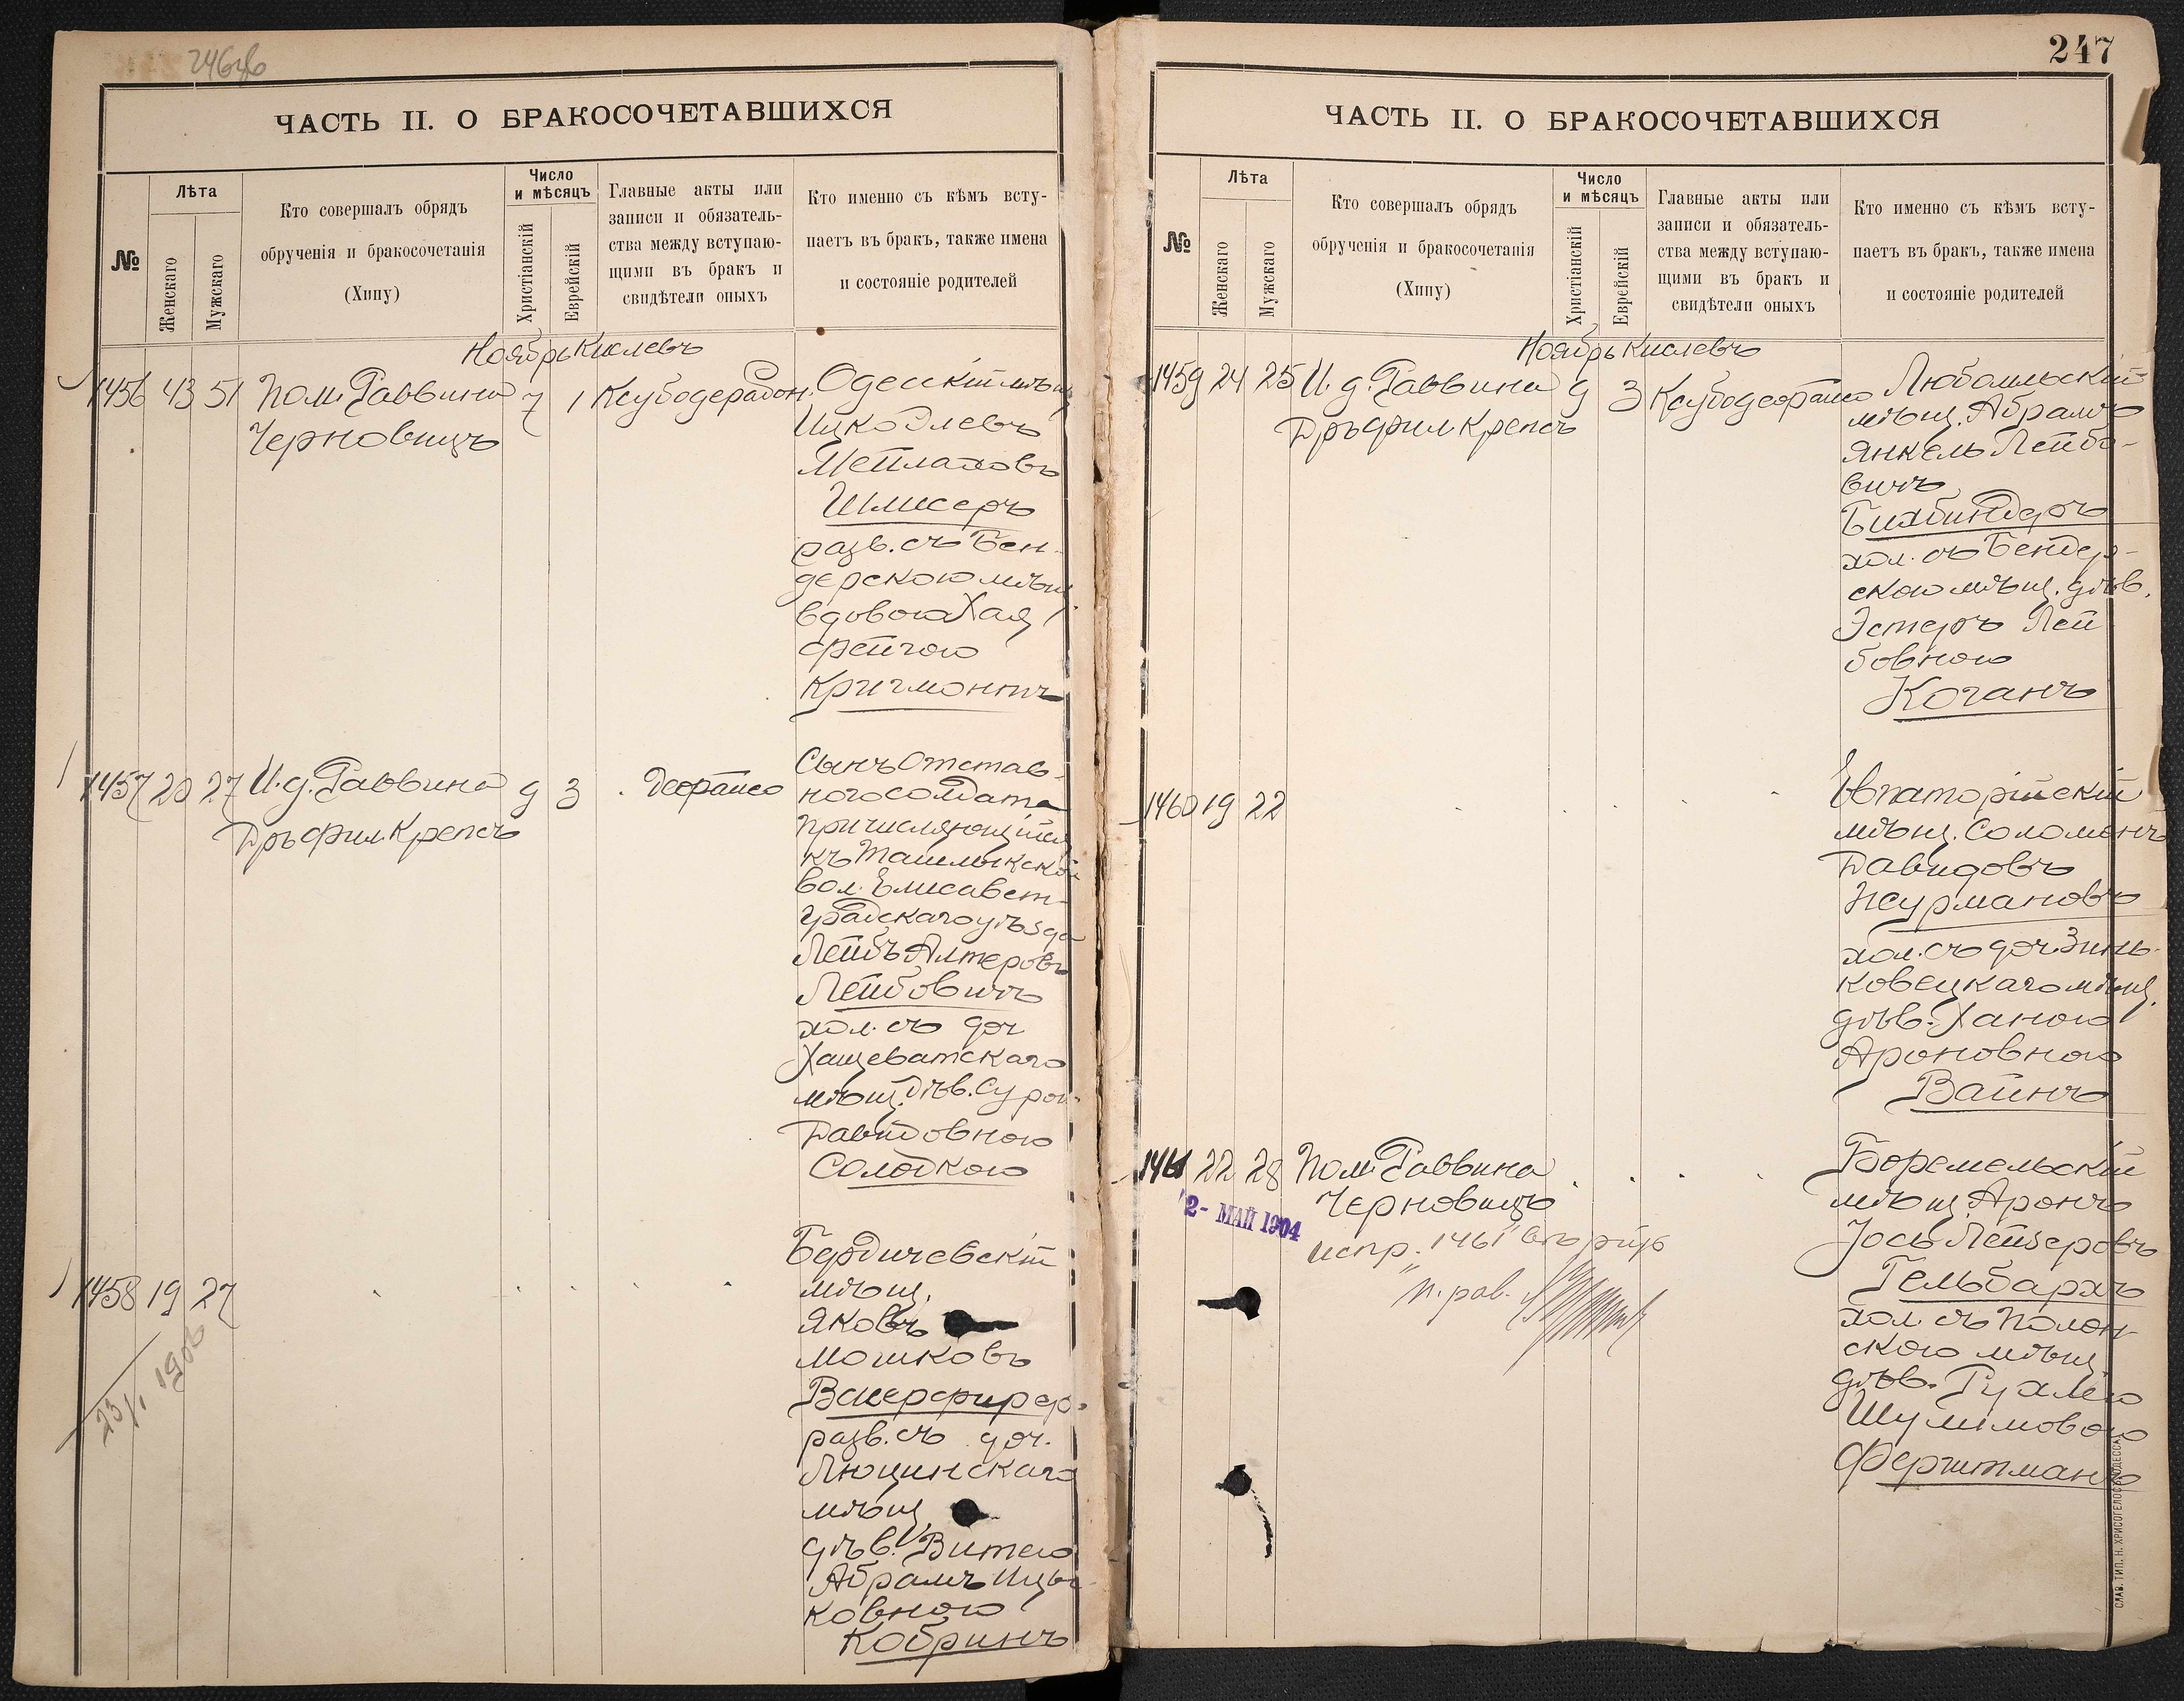 246об
ЧАСТЬ II. О БРАКОСОЧЕТАВШИХСЯ
№
Лѣта
Женскаго
Мужскаго
Кто совершалъ обрядъ
обрученія и бракосочетанія
(Хипу)
Число
и мѣсяцъ
Христіанскій
Еврейскій
Главные акты или
записи и обязатель-
ства между вступаю-
щими въ бракъ и
свидѣтели оныхъ
Кто именно съ кѣмъ всту-
паетъ въ бракъ, также имена
и состояніе родителей
Ноябрь Кислевъ
1456 43 51 Пом. Раввина 7 1
Черновицъ
Одесскій мѣщ.
Ицко
Мейлаховъ
Шлисеръ
разв. съ Бен-
дерскою мѣщ.
вдовою Хая
Фейгою
Кригмонтъ
1457 20 27 И. д. Раввина 9 3
Дръ Фил. Крепсъ
Сынъ отстав-
ного солдата
причисляющійся
къ Ташлыкской
вол. Елисавет-
градскаго уѣзда
Лейбъ Алтеровъ
Лейбовичъ
хол. съ доч
Хащеватскаго
мѣщ. дѣв. Сурою
Давидовною
Солодкою
1458 19 27
Бердичевскій
мѣщ.
Яковъ
Мошковъ
разв. съ доч.
Люцинскаго
мѣщ
дѣв. Витею
Абрамъ Ицъ-
ковною
Кобринъ
23/I 1906
247
ЧАСТЬ II. О БРАКОСОЧЕТАВШИХСЯ
№
Лѣта
Женскаго
Мужскаго
Кто совершалъ обрядъ
обрученія и бракосочетанія
(Хипу)
Число
и мѣсяцъ
Христіанскій
Еврейскій
Главные акты или
записи и обязатель-
ства между вступаю-
щими въ бракъ и
свидѣтели оныхъ
Кто именно съ кѣмъ всту-
паетъ въ бракъ, также имена
и состояніе родителей
Ноябрь Кислевъ
1459 24 25 И. д. Раввина 9 3
Дръ Фил Крепсъ
Любомльскій
мѣщ. Абрамъ
Янкель Лейбо-
вичъ
Бихбиндеръ
хол. съ Бендер-
скою мѣщ. дѣв.
Эстеръ Лей
бовною
Коганъ
1460 19 22
Евпаторійскій
мѣщ. Соломонъ
Давидовъ
Нсурмановъ
хол. съ доч. Зинь-
ковецкаго мѣщ.
дѣв. Ханою
Ароновною
Вайнъ
1461 22 28 Пом. Раввина
Черновицъ
Боремельскій
мѣщ. Аронъ
Іось Лейзеровъ
Гельбархъ
хол. съ Полон-
скою мѣщ.
дѣв. Рухлею
Шулимовою
Ферштманъ
2- МАЙ 1904
испр. "1461"
п. рав.
СЛАВ. ТИП. Н. ХРИСОГЕЛОСЪ, ОДЕССА.